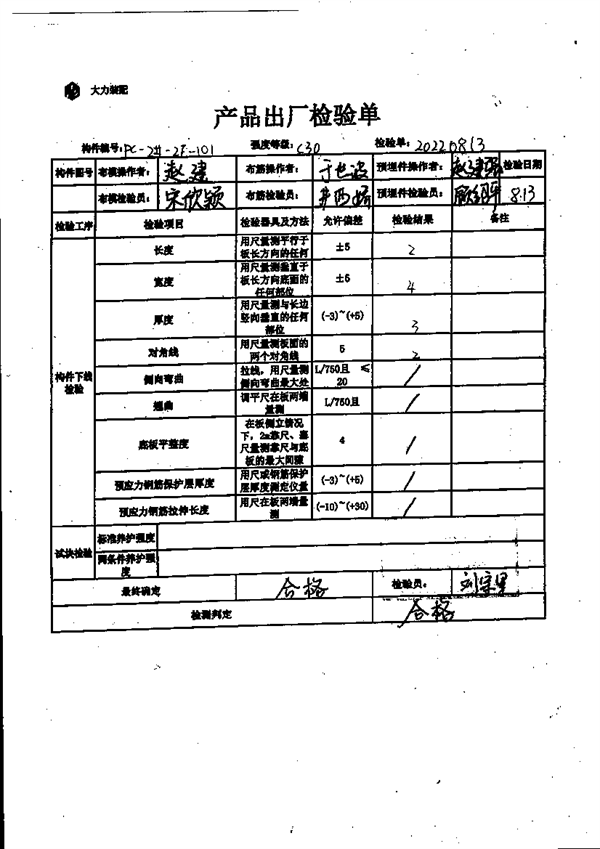 大力装配
产品出厂检验单
构件编号: PC-2#-2F-101 强度等级: C30 检验单: 20220813
构件图号 布模操作者: 赵建 布筋操作者: 预埋件操作者: 赵建强 检验日期
布模检验员: 宋欣颖 布筋检验员: 预埋件检验员: 8.13
检验工序 检验项目 检验器具及方法 允许偏差 检验结果 备注
构件下线检验
长度 用尺量测平行于板长方向的任何 ±5 2
宽度 用尺量测垂直于板长方向底面的任何部位 ±5 4
厚度 用尺量测与长边竖向垂直的任何部位 (-3)~(+5) 3
对角线 用尺量测板面的两个对角线 5 2
侧向弯曲 拉线，用尺量测侧向弯曲最大处 L/750且 ≤20 /
翘曲 调平尺在板两端量测 L/750且 /
底板平整度 在板侧立情况下，2m靠尺、塞尺量测靠尺与底板的最大间隙 4 /
预应力钢筋保护层厚度 用尺或钢筋保护层厚度测定仪量 (-3)~(+5) /
预应力钢筋拉伸长度 用尺在板两端量测 (-10)~(+30) /
试块检验 标准养护强度
同条件养护强度
最终确定 合格 检验员:
检测判定 合格